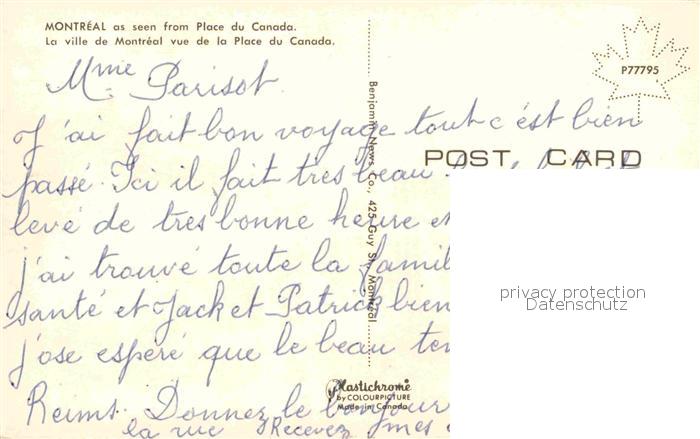 MONTRÉAL as seen from Place du Canada.
La ville de Montréal vue de la Place du Canada.
P77795
Mme Parisot
J'ai fait bon voyage tout c'est bien
POST CARD
passé. Ici il fait tres beau
levé de tres bonne heure et
j'ai trouvé toute la famil
santé et Jack et Patrick bien
j'ose espéré que le beau tem
Reims. Donnez le bonjour
la rue Recevez mes
Benjamin News Co., 425 Guy St., Montreal
Plastichrome
by COLOURPICTURE
Made in Canada
privacy protection
Datenschutz